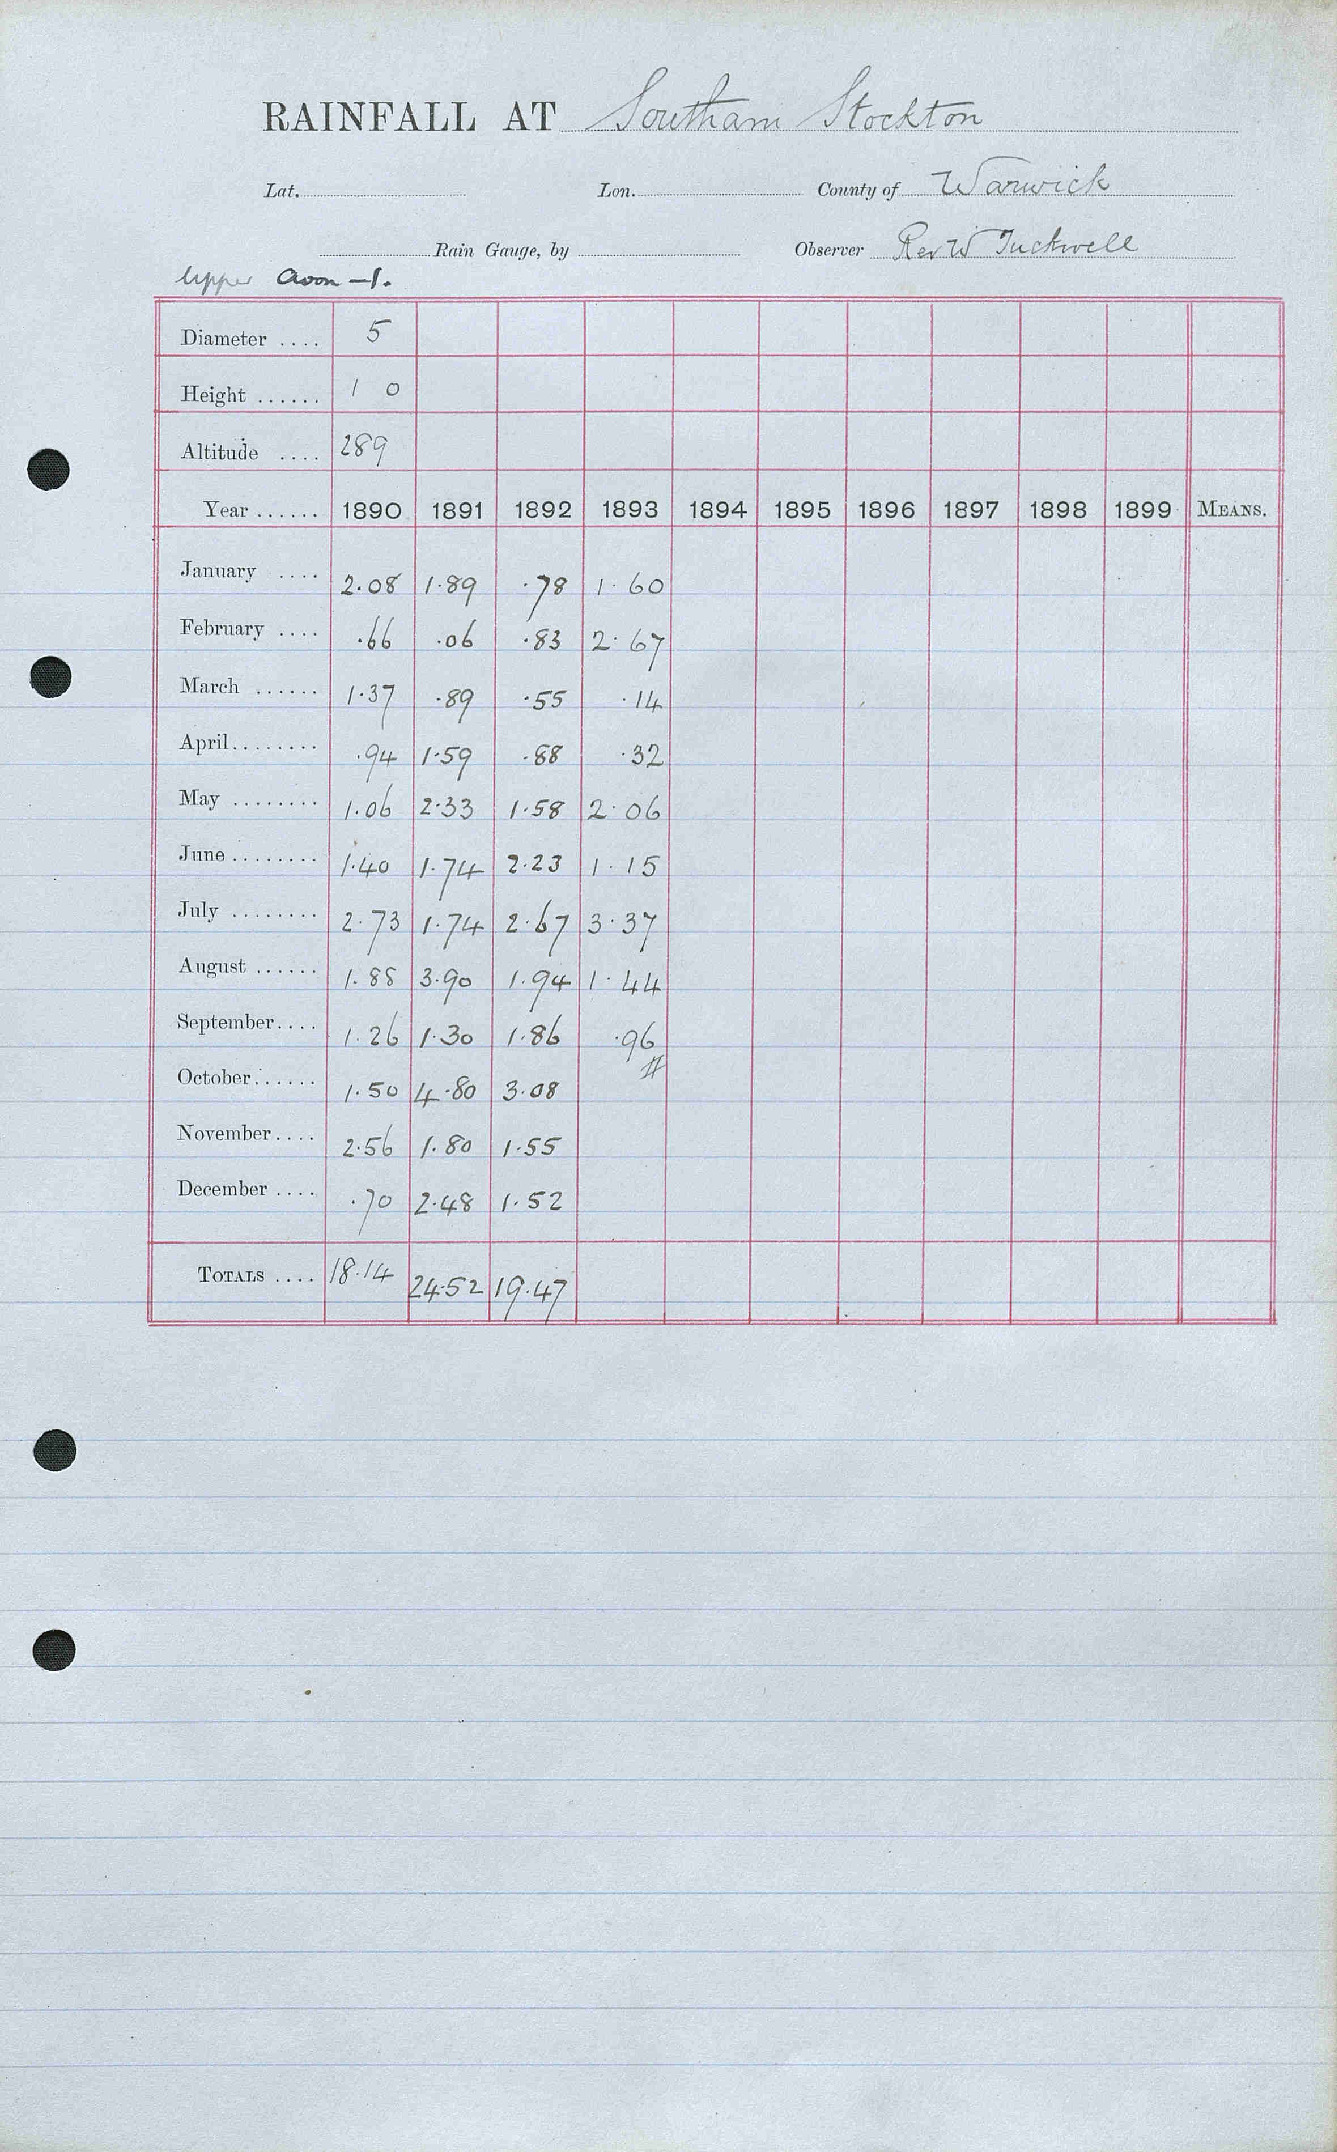 RAINFALL AT Southam Stockton
Lat. Lon. County of Warwick
Rain Gauge, by Observer Rev W Tuckwell
Upper Avon -1.
Diameter .... 5
Height ...... 1 0
Altitude .... 289
Year ...... 1890 1891 1892 1893 1894 1895 1896 1897 1898 1899 MEANS.
January .... 2.08 1.89 .78 1.60
February .... .66 .06 .83 2.67
March ...... 1.37 .89 .55 .14
April ........ .94 1.59 .88 .32
May ........ 1.06 2.33 1.58 2.06
June ........ 1.40 1.74 2.23 1.15
July ........ 2.73 1.74 2.67 3.37
August ...... 1.88 3.90 1.94 1.44
September.... 1.26 1.30 1.86 .96
October ...... 1.50 4.80 3.08
November .... 2.56 1.80 1.55
December .... .70 2.48 1.52
TOTALS .... 18.14 24.52 19.47